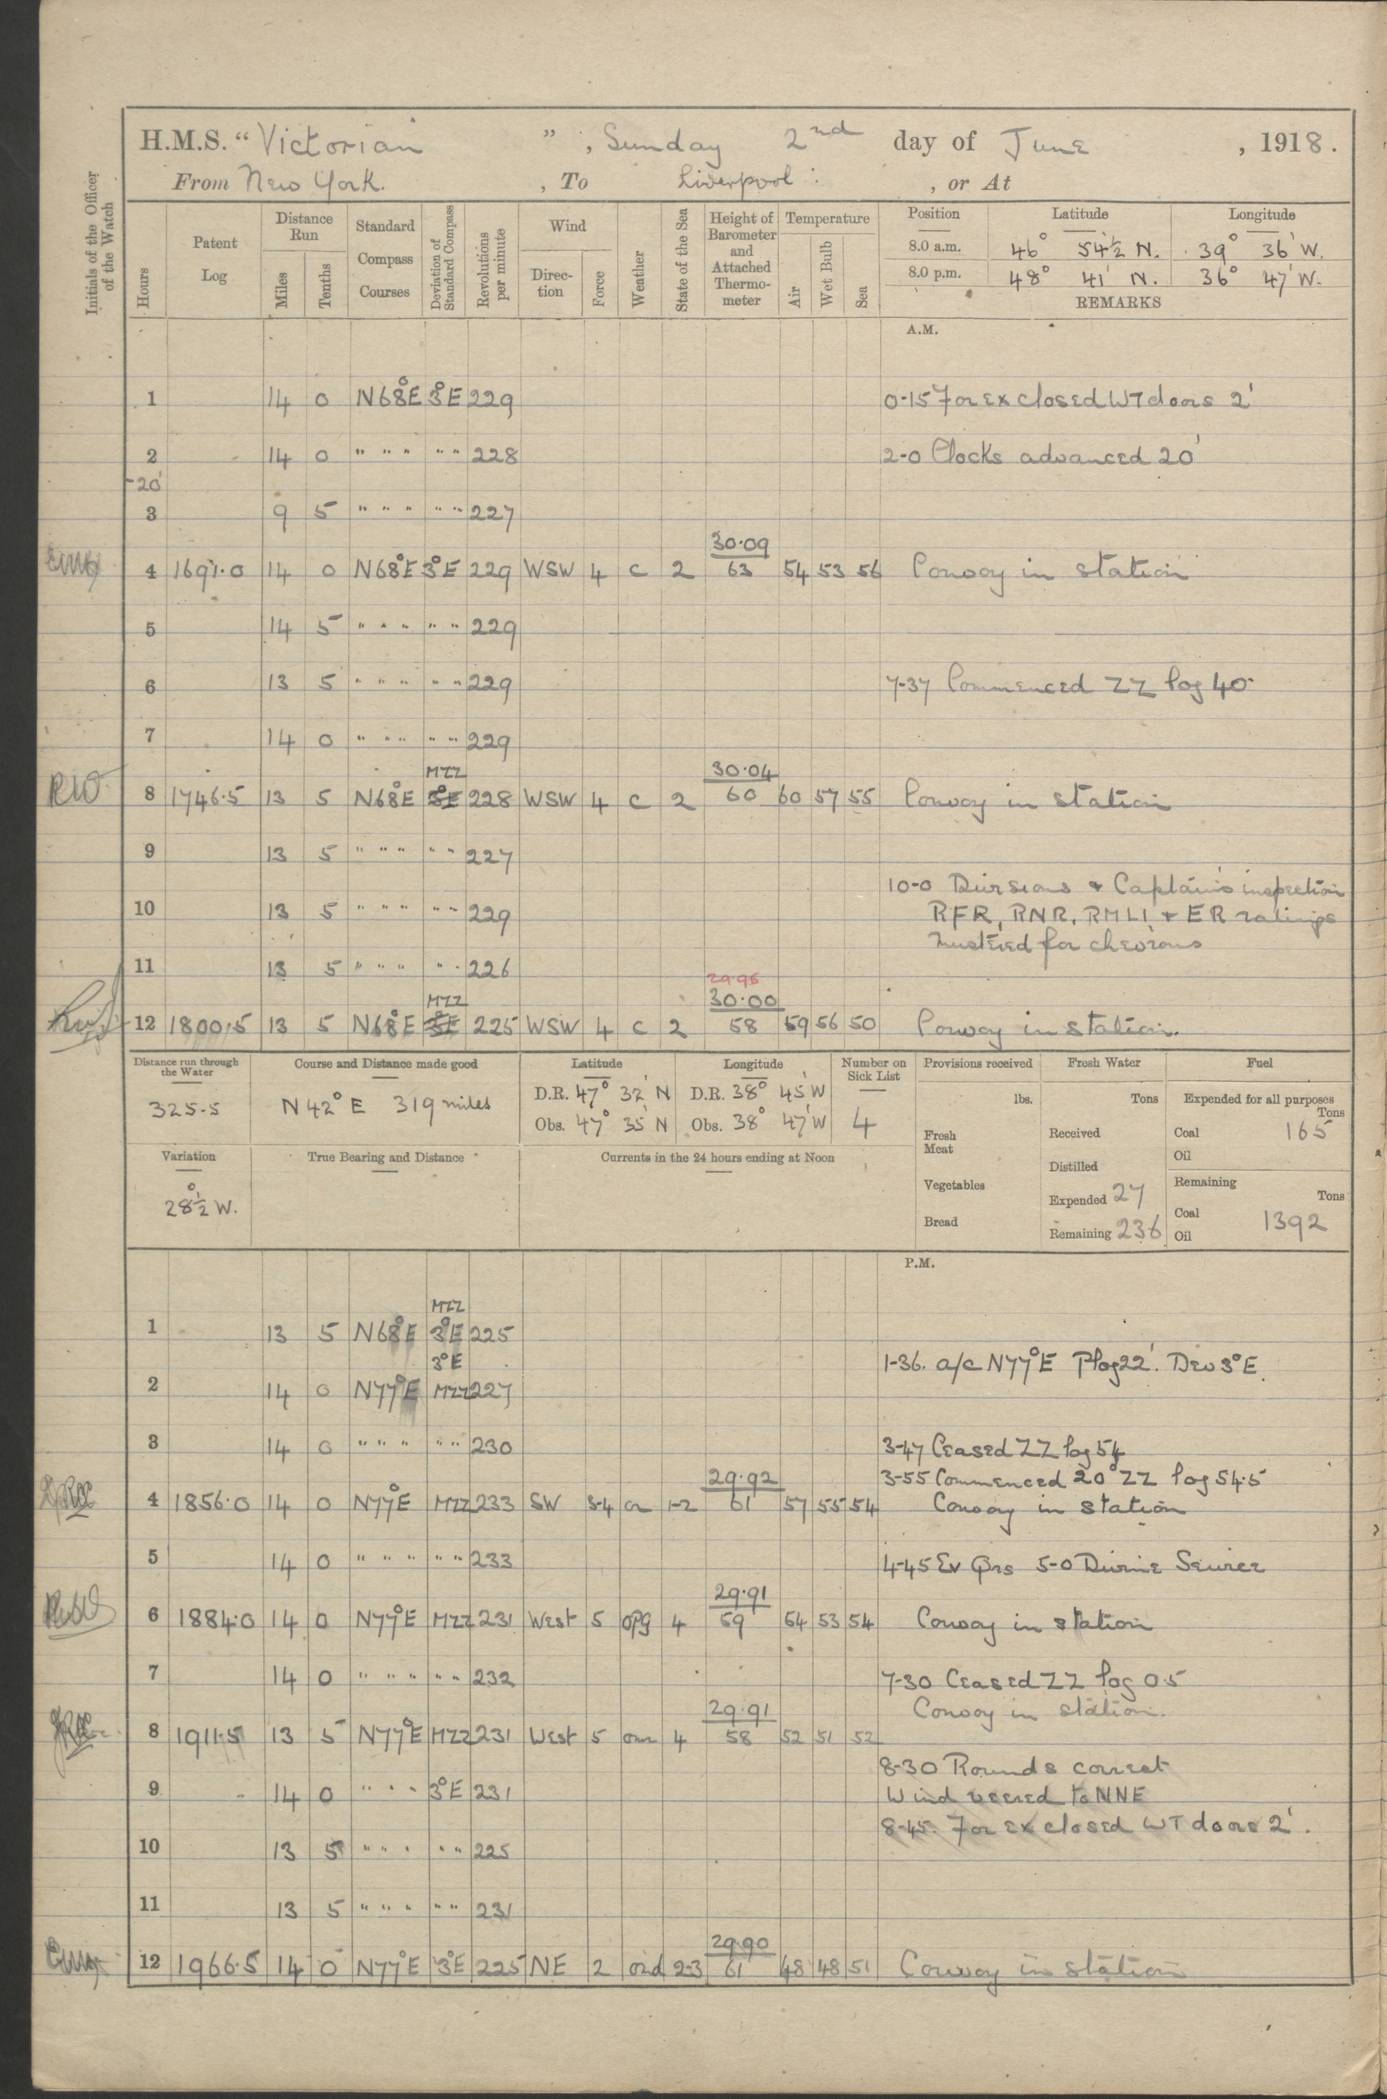 H.M.S. "Victorian", Sunday 2nd day of June, 1918.
From New York. , To Liverpool : , or At
Initials of the Officer of the Watch
Hours Patent Log Distance Run Miles Tenths Standard Compass Courses Deviation of Standard Compass Revolutions per minute Wind Direction Force Weather State of the Sea Height of Barometer and Attached Thermometer Temperature Air Wet Bulb Sea
Position Latitude Longitude
8.0 a.m. 46° 54½ N. 39° 36' W.
8.0 p.m. 48° 41' N. 36° 47' W.
REMARKS
A.M.
1 14 0 N68°E 3°E 229 0-15 For ex closed WT doors 2'
2 14 0 " " " " " 228 2-0 Clocks advanced 20'
-20'
3 9 5 " " " " " 227
30.09
4 1691.0 14 0 N68°E 3°E 229 WSW 4 c 2 63 54 53 56 Convoy in station
5 14 5 " " " " " 229
6 13 5 " " " " " 229 7-37 Commenced ZZ log 40
7 14 0 " " " " " 229
MZZ 30.04
RW 8 1746.5 13 5 N68°E 3°E 228 WSW 4 c 2 60 60 57 55 Convoy in station
9 13 5 " " " " " 227
10-0 Divisions & Captain's inspection
10 13 5 " " " " " 229 RFR, RNR, RMLI & ER ratings
mustered for chevrons
11 13 5 " " " " " 226
29.95
MZZ 30.00
12 1800.5 13 5 N68°E 3°E 225 WSW 4 c 2 58 59 56 50 Convoy in station.
Distance run through the Water Course and Distance made good Latitude Longitude Number on Sick List Provisions received Fresh Water Fuel
325.5 N 42° E 319 miles D.R. 47° 32' N D.R. 38° 45' W 4
Obs. 47° 35' N Obs. 38° 47' W
lbs. Tons Expended for all purposes Tons
Fresh Meat Received Coal 165
Oil
Variation True Bearing and Distance Currents in the 24 hours ending at Noon
28½° W.
Distilled Remaining Tons
Vegetables Expended 27 Coal 1392
Bread Remaining 236 Oil
P.M.
MZZ
1 13 5 N68°E 3°E 225
3°E 1-36. a/c N77°E Plog 22'. Dev 3°E.
2 14 0 N77°E MZZ 227
3 14 0 " " " " " 230 3-47 Ceased ZZ log 54
29.92 3-55 Commenced 20° ZZ log 54.5
4 1856.0 14 0 N77°E MZZ 233 SW 3-4 or 1-2 61 57 55 54 Convoy in station
5 14 0 " " " " " 233 4-45 Ev Qrs 5-0 Divine Service
29.91
6 1884.0 14 0 N77°E MZZ 231 West 5 opg 4 59 54 53 54 Convoy in station
7 14 0 " " " " " 232 7-30 Ceased ZZ log 0.5
29.91 Convoy in station.
8 1911.5 13 5 N77°E MZZ 231 West 5 4 58 52 51 52
8-30 Rounds correct
9 14 0 " " " 3°E 231 Wind veered to NNE
8-45. For ex closed WT doors 2'.
10 13 5 " " " " " 225
11 13 5 " " " " " 231
29.90
12 1966.5 14 0 N77°E 3°E 225 NE 2 ord 2-3 61 48 48 51 Convoy in station